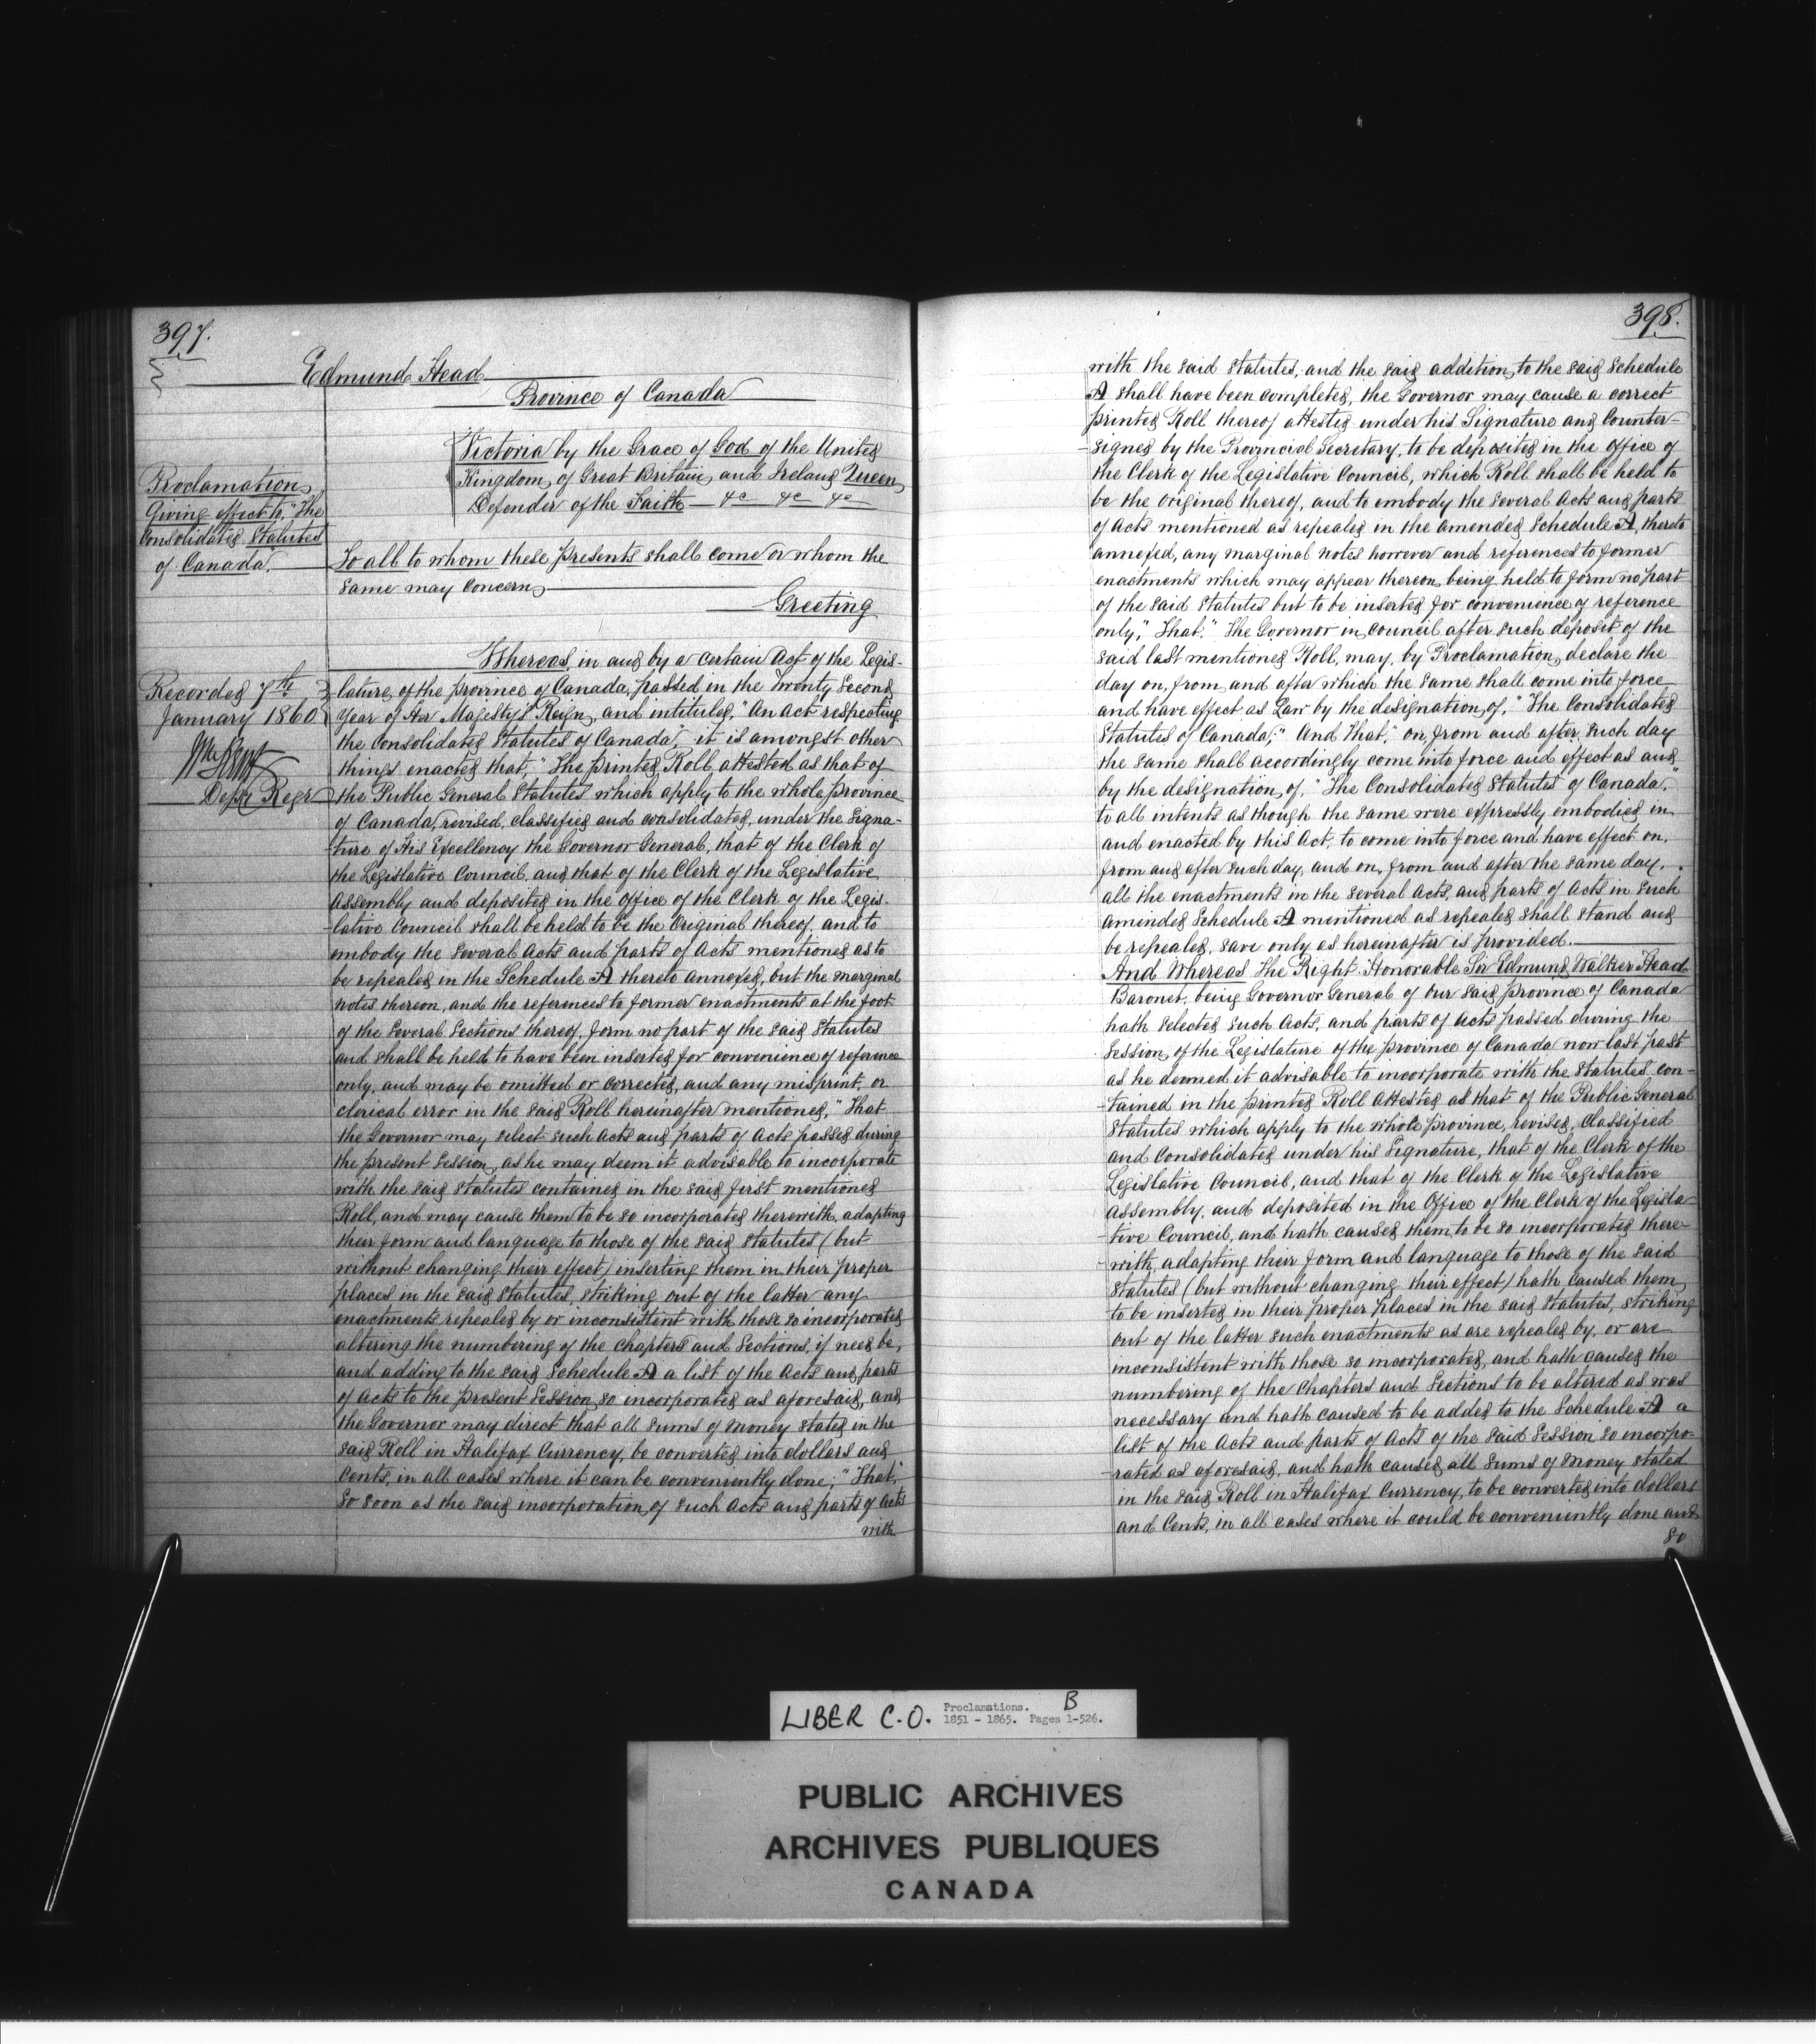 397.
Edmund Head
Province of Canada
Victoria by the Grace of God of the United
Kingdom of Great Britain and Ireland Queen
Defender of the Faith — &c &c &c
Proclamation
Giving effect to "The
Consolidated Statutes
of Canada".
To all to whom these presents shall come or whom the
same may concern
Greeting
Recorded 7th
January 1860
Depy Regr
Whereas, in and by a certain Act of the Legis-
lature, of the province of Canada, passed in the Twenty Second
Year of Her Majesty's Reign, and intituled, "An Act respecting
the Consolidated Statutes of Canada," it is amongst other
things enacted that, "The printed Roll attested as that of
the Public General Statutes which apply to the whole province
of Canada, revised, classified and consolidated, under the Signa-
ture of His Excellency the Governor General, that of the Clerk of
the Legislative Council, and that of the Clerk of the Legislative
Assembly and deposited in the Office of the Clerk of the Legis-
lative Council shall be held to be the Original thereof, and to
embody the several Acts and parts of Acts mentioned as to
be repealed in the Schedule A thereto annexed, but the marginal
notes thereon, and the references to former enactments at the foot
of the several Sections thereof, form no part of the said Statutes
and shall be held to have been inserted for convenience of reference
only, and may be omitted or corrected, and any misprint, or
clerical error in the said Roll hereinafter mentioned," That
the Governor may select such Acts and parts of Acts passed during
the present Session, as he may deem it advisable to incorporate
with the said Statutes contained in the said first mentioned
Roll, and may cause them to be so incorporated therewith, adapting
their form and language to those of the said Statutes (but
without changing their effect) inserting them in their proper
places in the said Statutes, striking out of the latter any
enactments repealed by or inconsistent with those so incorporated
altering the numbering of the chapters and Sections, if need be,
and adding to the said Schedule A a list of the Acts and parts
of Acts to the present Session so incorporated as aforesaid, and
the Governor may direct that all sums of money stated in the
said Roll in Halifax Currency, be converted into dollars and
Cents, in all cases where it can be conveniently done;" "That,"
So soon as the said incorporation of such Acts and parts of Acts
with
398.
with the said Statutes, and the said addition to the said Schedule
A shall have been completed, the Governor may cause a correct
printed Roll thereof attested under his Signature and Counter-
signed by the Provincial Secretary, to be deposited in the Office of
the Clerk of the Legislative Council, which Roll shall be held to
be the original thereof, and to embody the several Acts and parts
of Acts mentioned as repealed in the amended Schedule A, thereto
annexed, any marginal notes however and references to former
enactments which may appear thereon being held to form no part
of the said Statutes but to be inserted for convenience of reference
only," That," The Governor in Council after such deposit of the
said last mentioned Roll, may, by Proclamation, declare the
day on, from, and after which the same shall come into force
and have effect as Law by the designation of, "The Consolidated
Statutes of Canada;" And That," on, from and after such day
the same shall accordingly come into force and effect as and
by the designation of, "The Consolidated Statutes of Canada,"
to all intents as though the same were expressly embodied in
and enacted by this Act, to come into force and have effect on,
from and after such day, and on, from and after the same day,
all the enactments in the several Acts, and parts of Acts in such
amended Schedule A mentioned as repealed shall stand and
be repealed, save only as hereinafter is provided.
And Whereas The Right Honorable Sir Edmund Walker Head
Baronet, being Governor General of Our said province of Canada
hath selected such Acts, and parts of Acts passed during the
Session, of the Legislature of the province of Canada now last past
as he deemed it advisable to incorporate with the Statutes con-
tained in the printed Roll attested as that of the Public General
Statutes which apply to the whole province, revised, Classified
and Consolidated under his Signature, that of the Clerk of the
Legislative Council, and that of the Clerk of the Legislative
Assembly, and deposited in the Office of the Clerk of the Legisla-
tive Council, and hath caused them to be so incorporated there-
with, adapting their form and language to those of the said
Statutes (but without changing their effect) hath caused them
to be inserted in their proper places in the said Statutes, striking
out of the latter such enactments as are repealed by, or are
inconsistent with those so incorporated, and hath caused the
numbering of the Chapters and Sections to be altered as was
necessary and hath caused to be added to the Schedule A a
list of the Acts and parts of Acts of the said Session so incorpo-
rated as aforesaid, and hath caused all sums of money stated
in the said Roll in Halifax Currency, to be converted into dollars
and Cents, in all cases where it could be conveniently done and
so
LIBER C.O. Proclamations. B
1851 - 1865. Pages 1-526.
PUBLIC ARCHIVES
ARCHIVES PUBLIQUES
CANADA